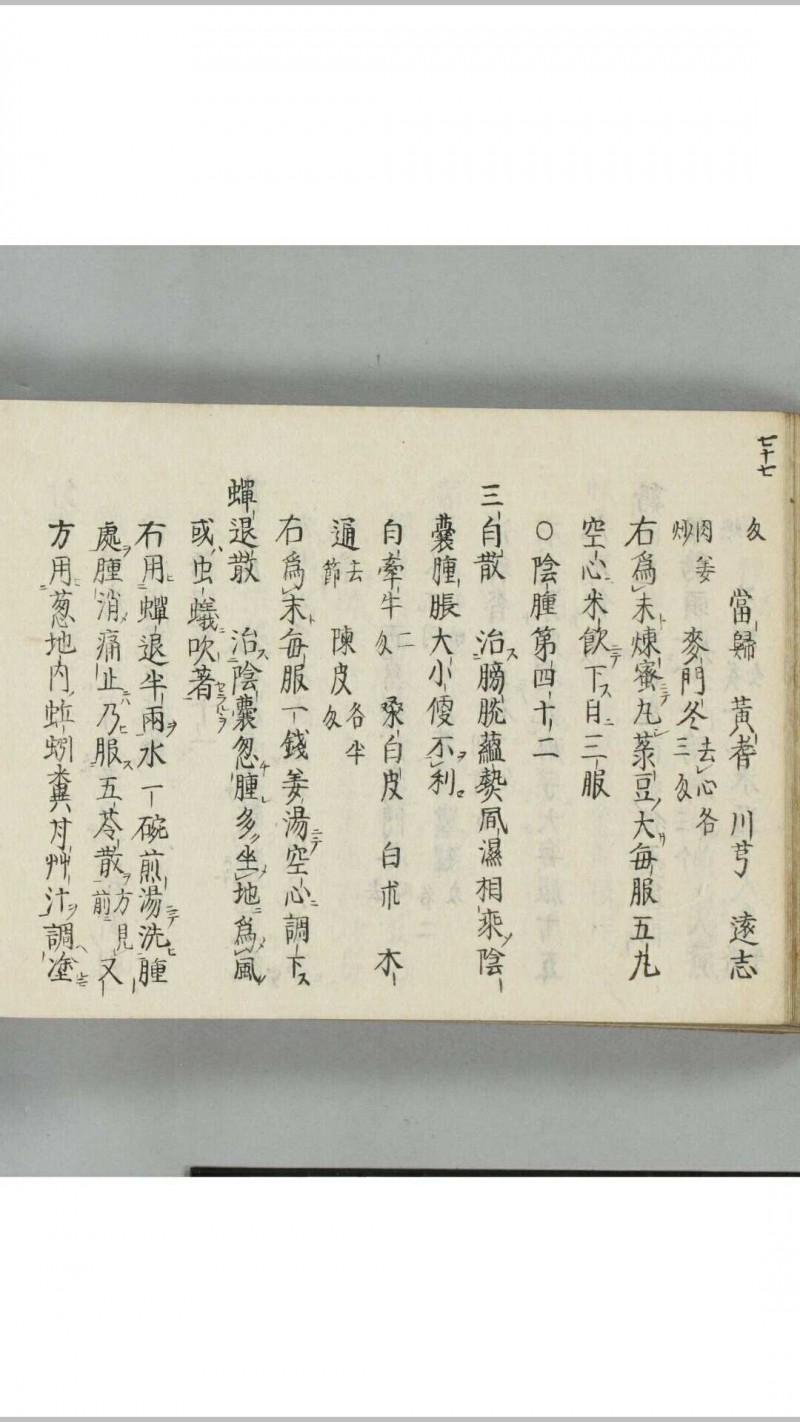 七十七
当歸 黄耆 川芎 遠志
肉姜炒 麥門冬去心各三
右爲末煉蜜丸菉豆大毎服五丸
空心米飲下日三服
○陰腫第四十二
三白散 治膀胱蘊𤍠風濕相乗陰
囊腫脹大小便不利
白牽牛二 桑白皮 白朮 木
通去節 陳皮各半
右爲末毎服一錢姜湯空心調下
蟬退散 治陰囊忽腫多坐地爲風
或虫蟻吹著
右用蟬退半兩水一碗煎湯洗腫
處腫消痛止乃服五苓散方見前又
方用葱地内蚯蚓糞甘艸汁調塗